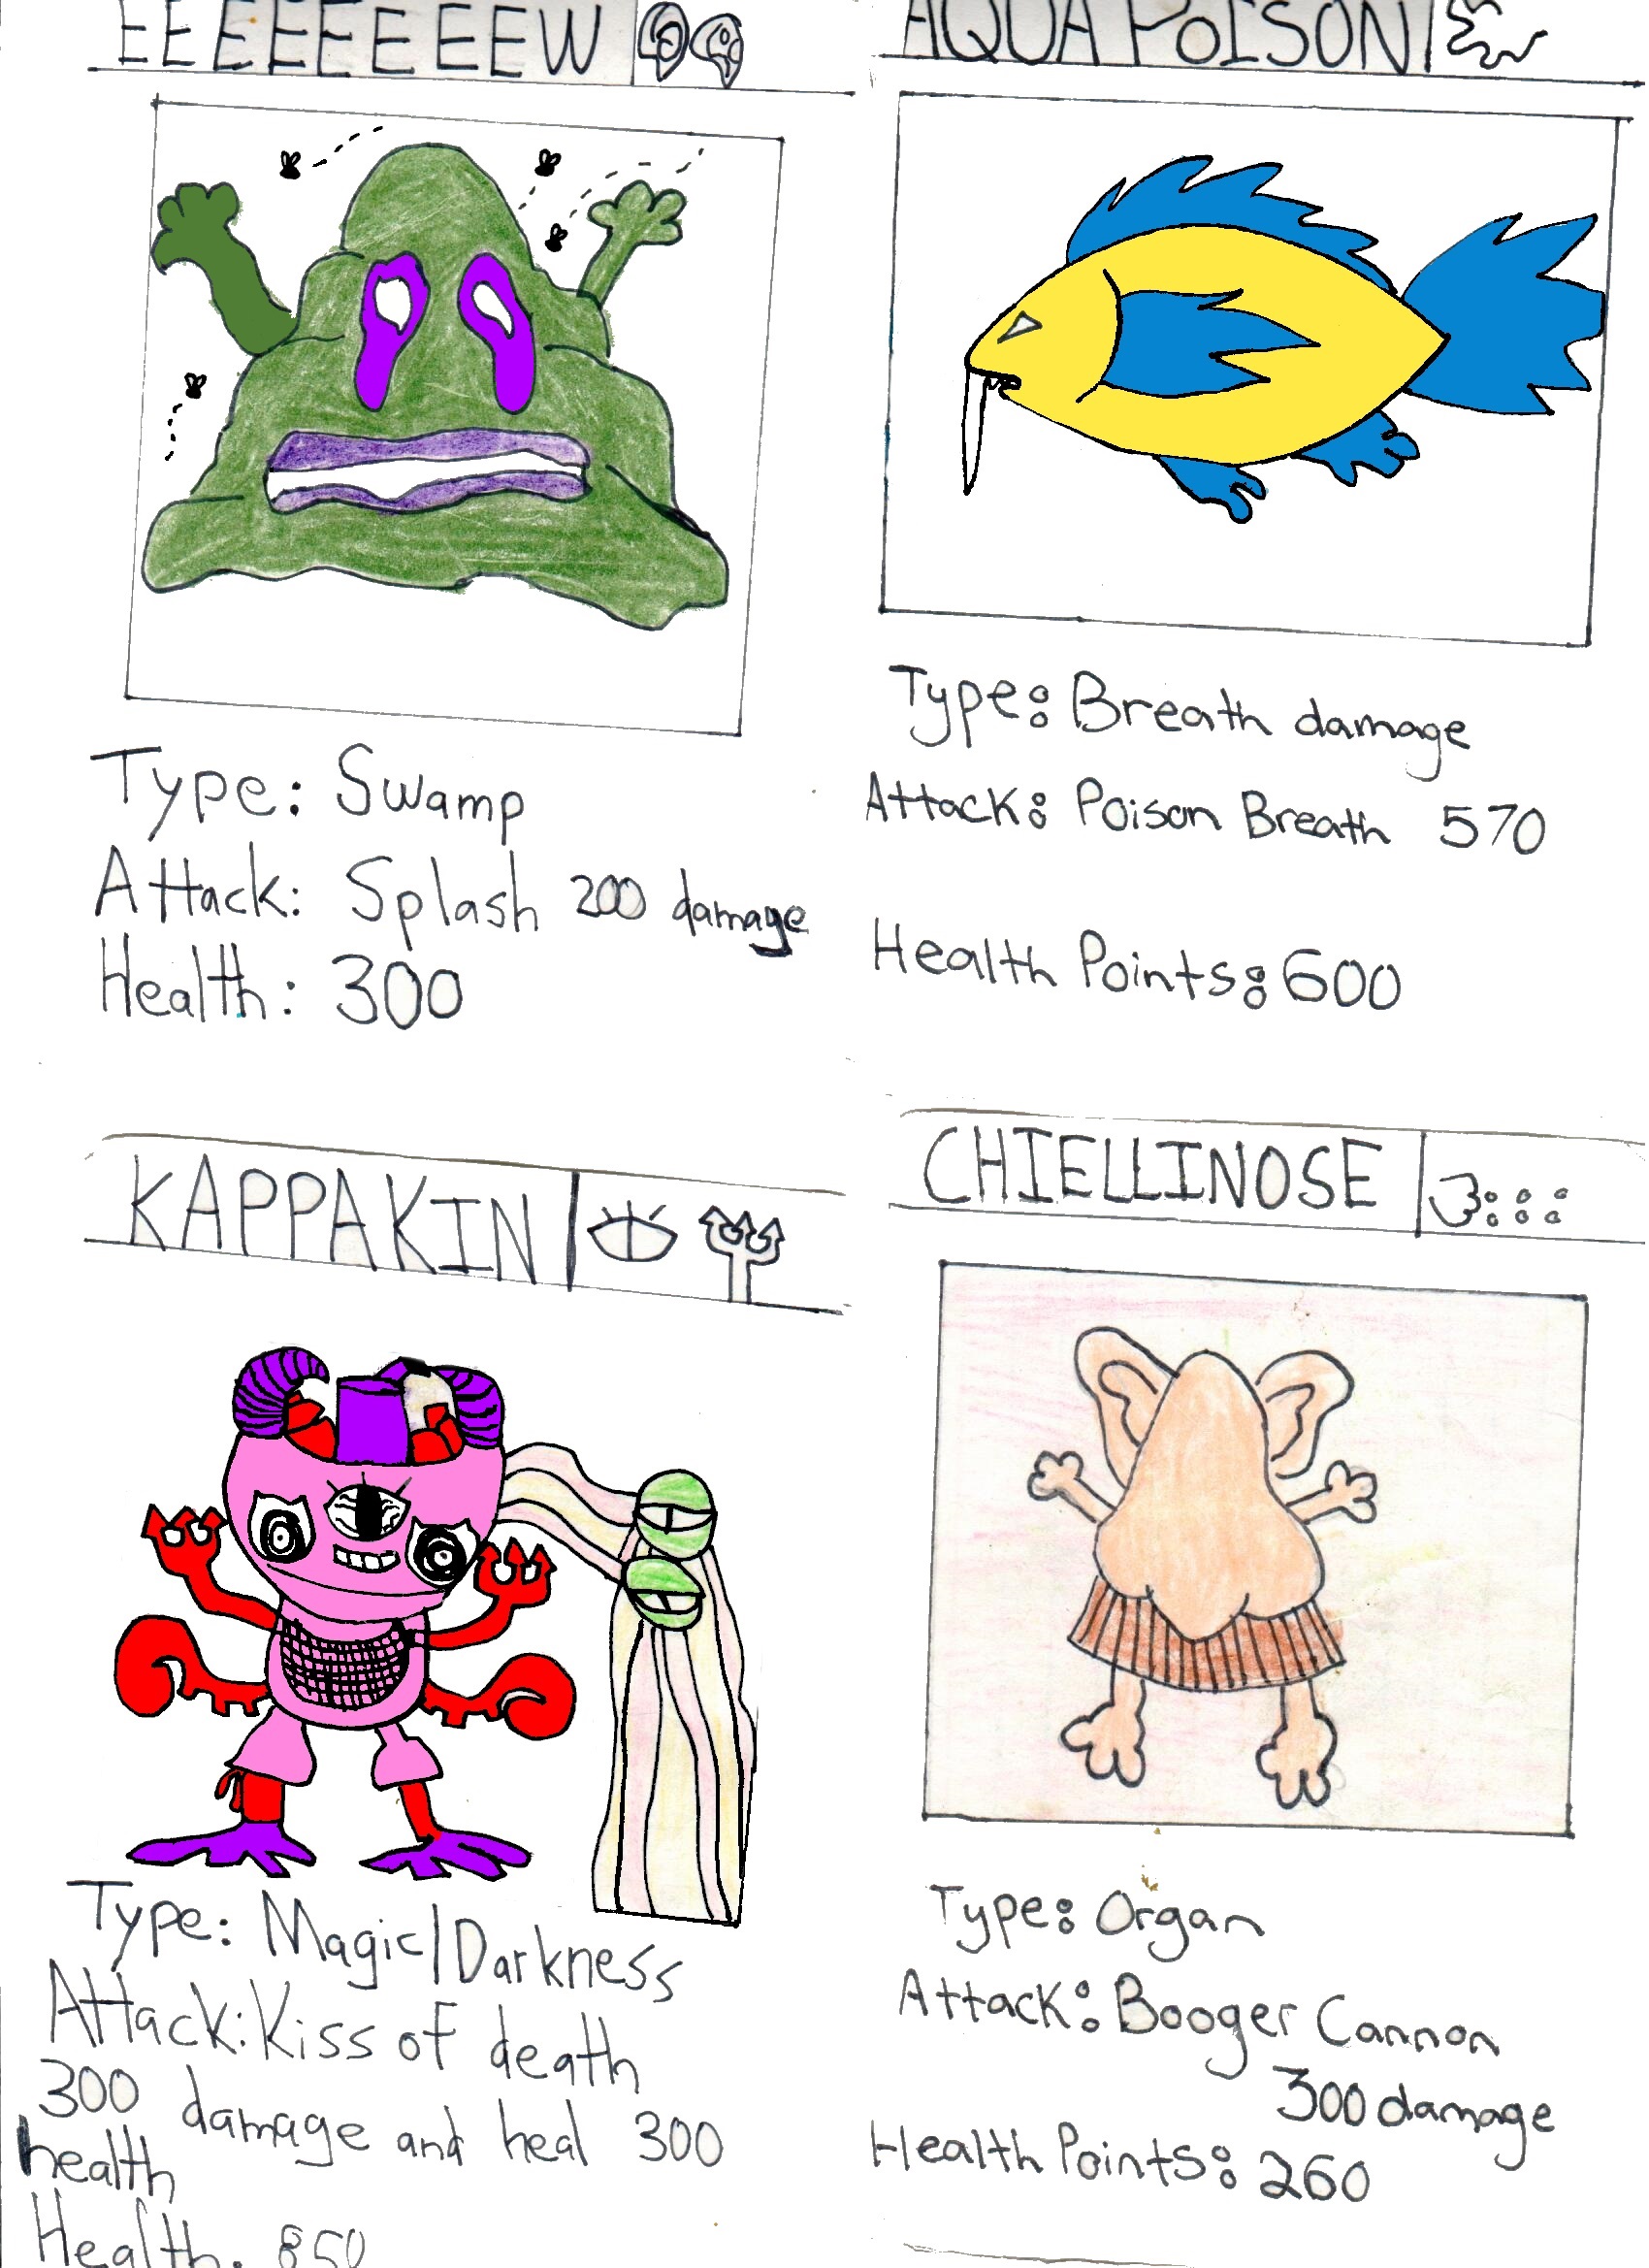 EEEEEEEEW
Type: Swamp
Attack: Splash 200 damage
Health: 300
AQUA POISON
Type: Breath damage
Attack: Poison Breath 570
Health Points: 600
KAPPAKIN
Type: Magic/Darkness
Attack: Kiss of death
300 damage and heal 300
health
Health: 850
CHIELLINOSE
Type: Organ
Attack: Booger Cannon
300 damage
Health Points: 260